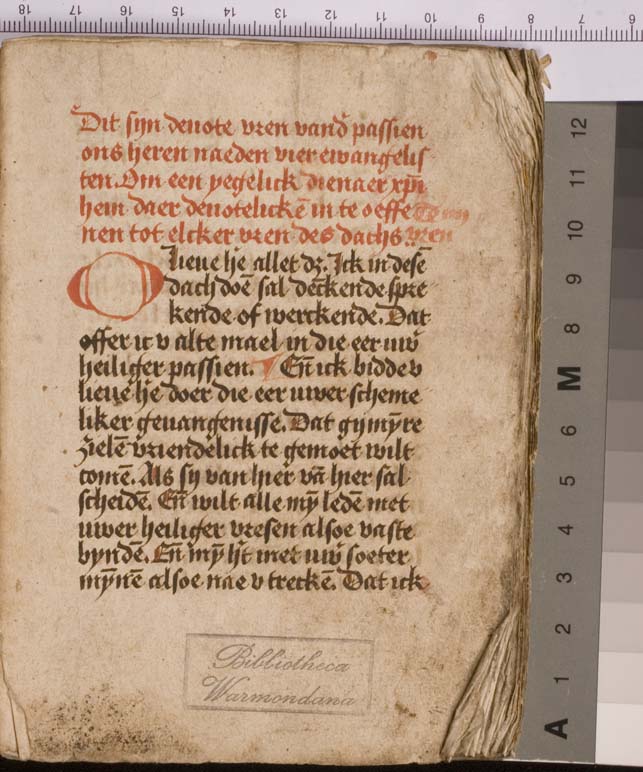 Dit sijn deuote vren vand̄ passien
ons heren naeden vier ewangelis
ten. Om een yegelick dienaer xp̄i
hem daer deuotelickē in te oeffe
nen tot elcker vren des dachs. vren
O lieue hē allet dz. Ick in desē
dach doē sal dēckende spre
kende of werckende. Dat
offer ic v alte mael in die eer uwͬ
heiliger passien. ¶ Eñ ick bidde v
lieue hē doer die eer uwer scheme
liker geuangenisse. Dat gy mȳre
zielē vriendelick te gemoet wilt
comē. Als sij van hier vā hier sal
scheidē. Eñ wilt alle mȳ ledē met
uwer heiliger vresen alsoe vaste
byndē. Eñ mȳ h̄t met uwͬ soeter
mȳnē alsoe nae v treckē. Dat ick
Bibliotheca
Warmondana